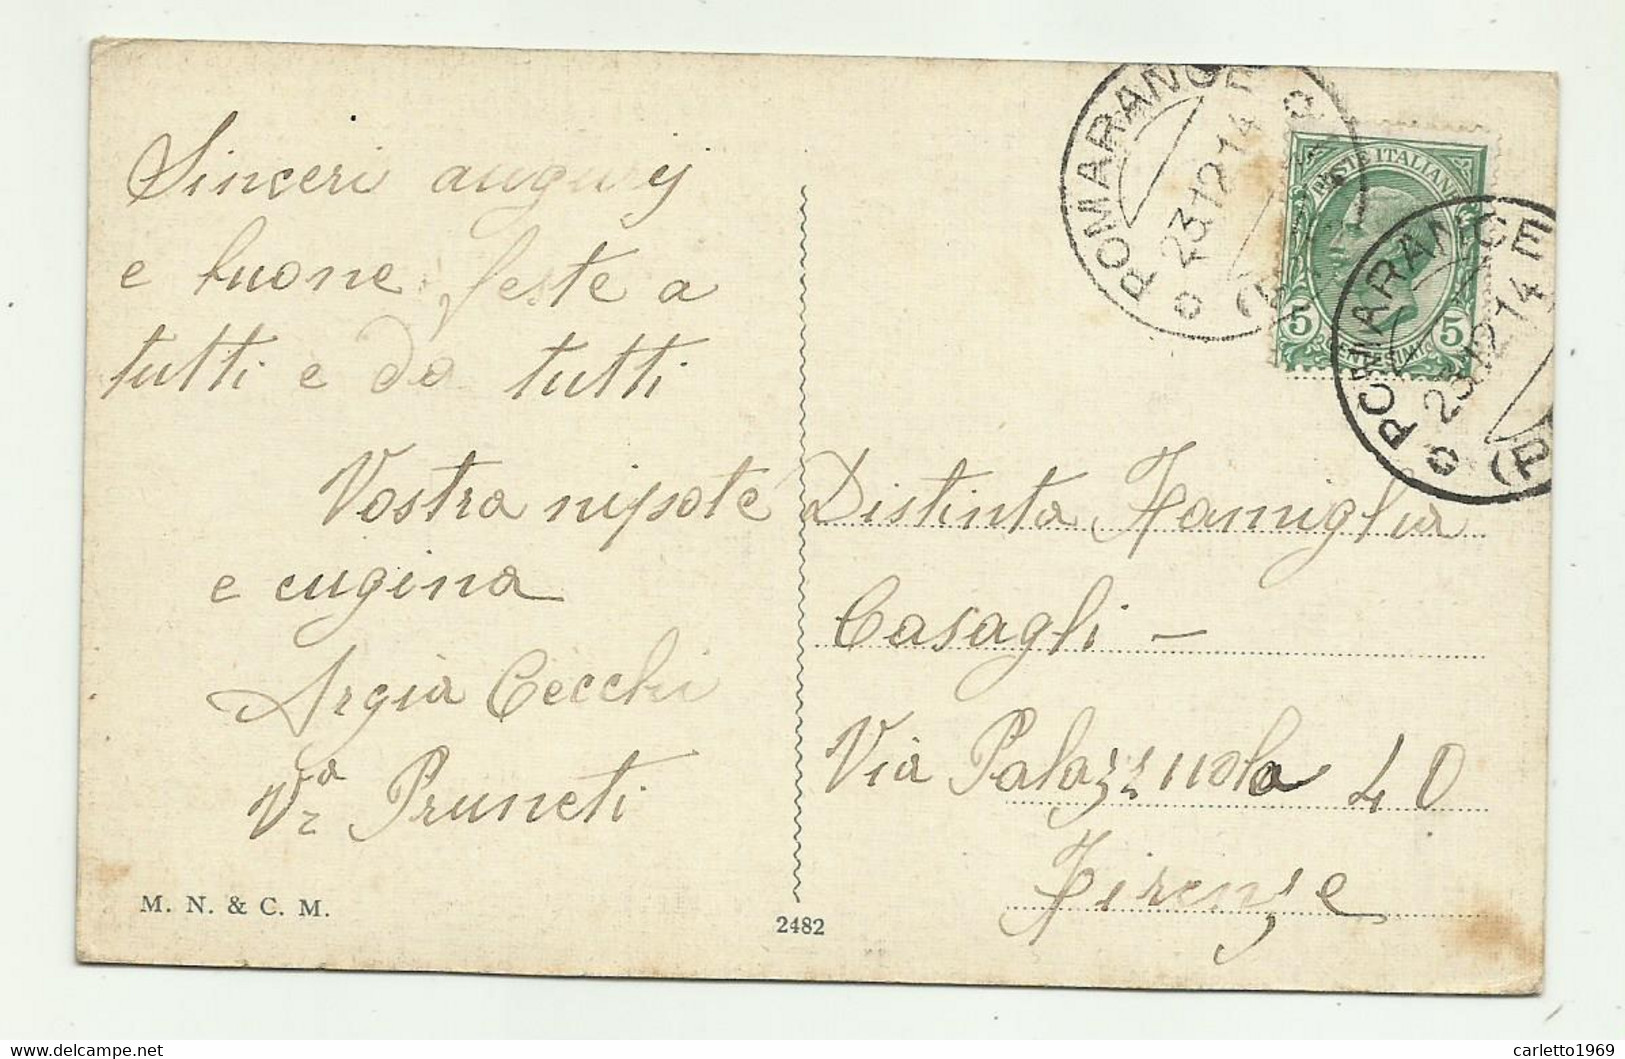 Sinceri augurj
e buone feste a
tutti e da tutti
Vostra nipote
e cugina
Argia Cecchi
Vª Pruneti
M. N. & C. M.
2482
POMARANCE
23.12.14
POSTE ITALIANE
5 5
CENTESIMI
POMARANCE
23.12.14
(P
Distinta Famiglia
Casagli –
Via Palazzuolo 40
Firenze
delcampe.net
carletto1969